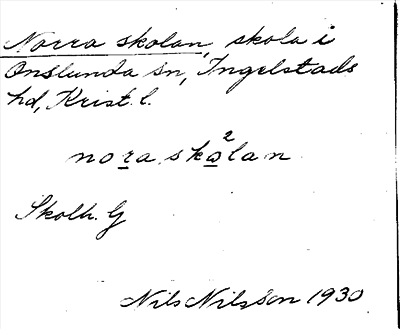 Norra skolan, skola i
Onslunda sn, Ingelstads
hd, Krist. l.
nora sko²lan
Skolh. G
Nils Nilsson 1930